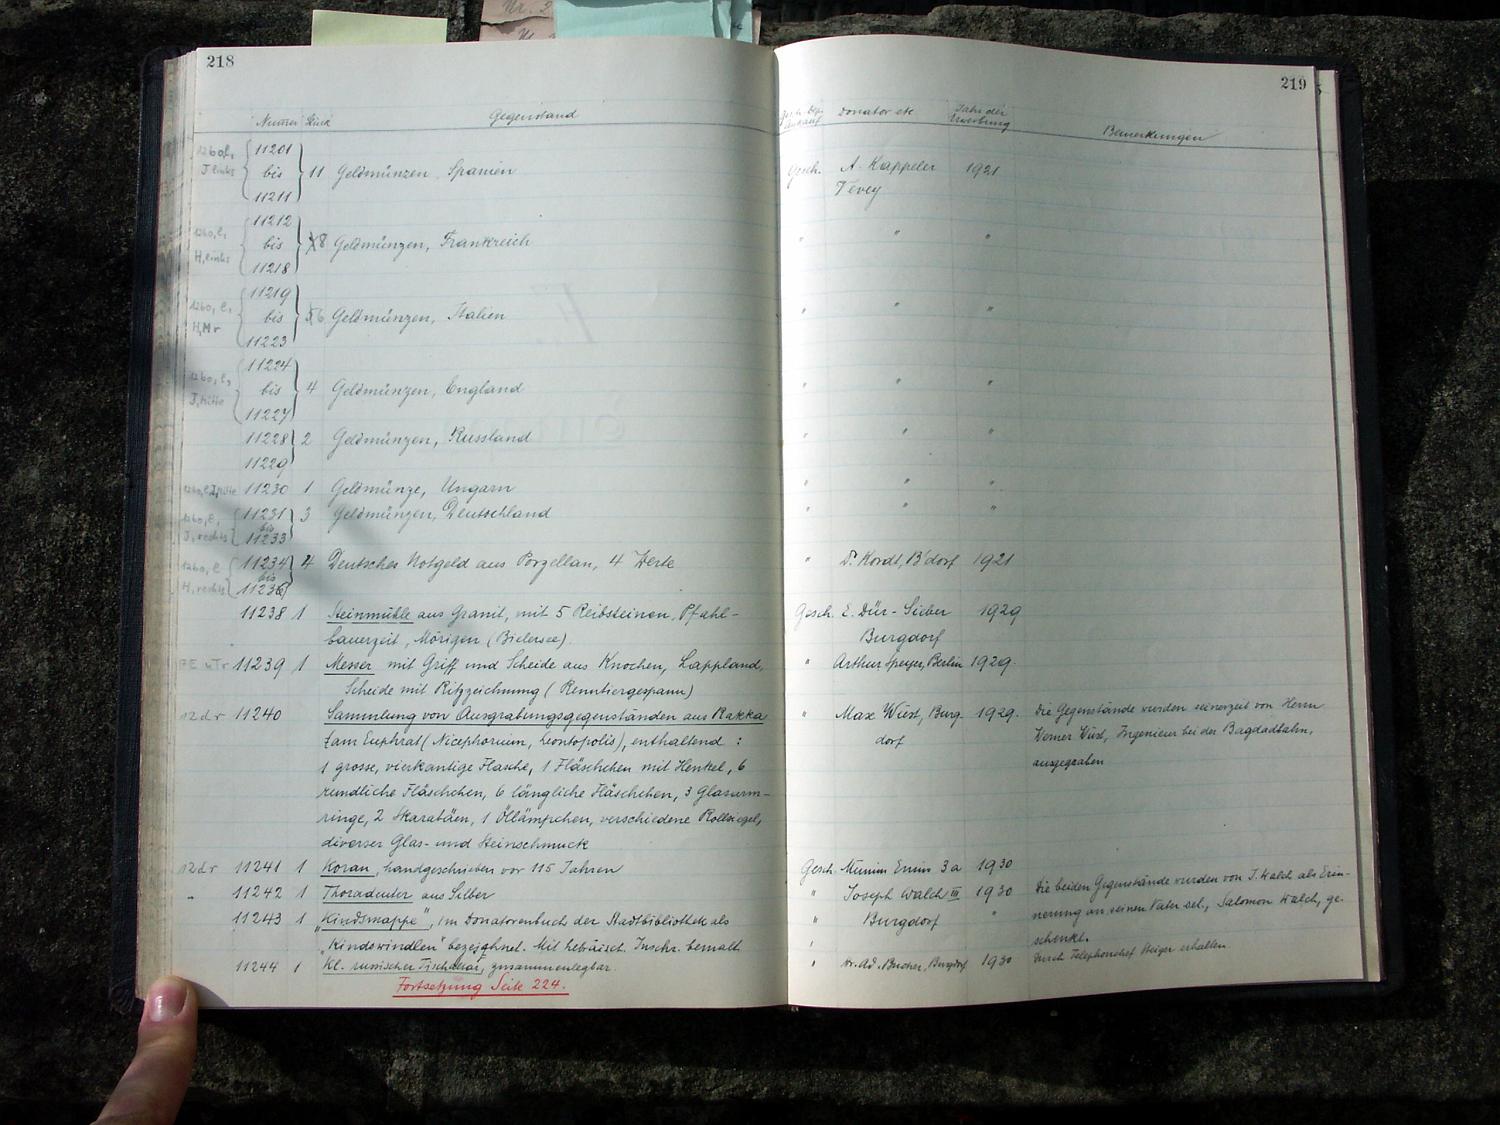 218
Numer Stück Gegenstand
11201
bis 11 Geldmünzen, Spanien
11211
11212
bis 8 Geldmünzen, Frankreich
11218
11219
bis 6 Geldmünzen, Italien
11223
11224
bis 4 Geldmünzen, England
11227
11228 2 Geldmünzen, Russland
11229
11230 1 Geldmünze, Ungarn
11231 3 Geldmünzen, Deutschland
bis
11233
11234 4 Deutsches Notgeld aus Porzellan, 4 Werte
bis
11238 1 Steinmühle aus Granit, mit 5 Reibsteinen, Pfahl-
bauerzeit, Mörigen (Bielersee).
11239 1 Messer mit Griff und Scheide aus Knochen, Lappland,
Scheide mit Ritzzeichnung (Renntiergespann)
12 dr 11240 Sammlung von Ausgrabungsgegenständen aus Rakka
am Euphrat (Nicephorium, Leontopolis), enthaltend :
1 grosse, vierkantige Flasche, 1 Fläschchen mit Henkel, 6
rundliche Fläschchen, 6 längliche Fläschchen, 3 Glasarm-
ringe, 2 Skarabäen, 1 Öllämpchen, verschiedene Rollsiegel,
diverser Glas- und Steinschmuck
12 dr 11241 1 Koran, handgeschrieben vor 115 Jahren
" 11242 1 Thoradeuter aus Silber
11243 1 „Kindsmappe", im Donatorenbuch der Stadtbibliothek als
„Kindswindlen" bezeichnet. Mit hebräisch. Inschr. bemalt
11244 1 Kl. russischer Tischaltar, zusammenlegbar.
Fortsetzung Seite 224.
219
Ankauf Donator etc Jahr der Bemerkungen
Gesch. A. Kappeler 1921
Vevey
" " "
" "
" " "
" " "
" " "
" " "
" Dr. Kordt, B'dorf 1921
Gesch. E. Dür-Sieber 1929
Burgdorf
" Arthur Speyer, Berlin 1929.
" Max Wiest, Burg- 1929. Die Gegenstände wurden seinerzeit von Herrn
dorf Werner Wüst, Ingenieur bei der Bagdadbahn,
ausgegraben
Gesch. 1930
" Joseph Walch III 1930 Die beiden Gegenstände wurden von J. Walch als Erin-
" Burgdorf " nerung an seinen Vater sel., Salomon Walch, ge-
schenkt.
" Ad. Bucher, Burgdorf 1930 Durch Telephonchef Steiger erhalten